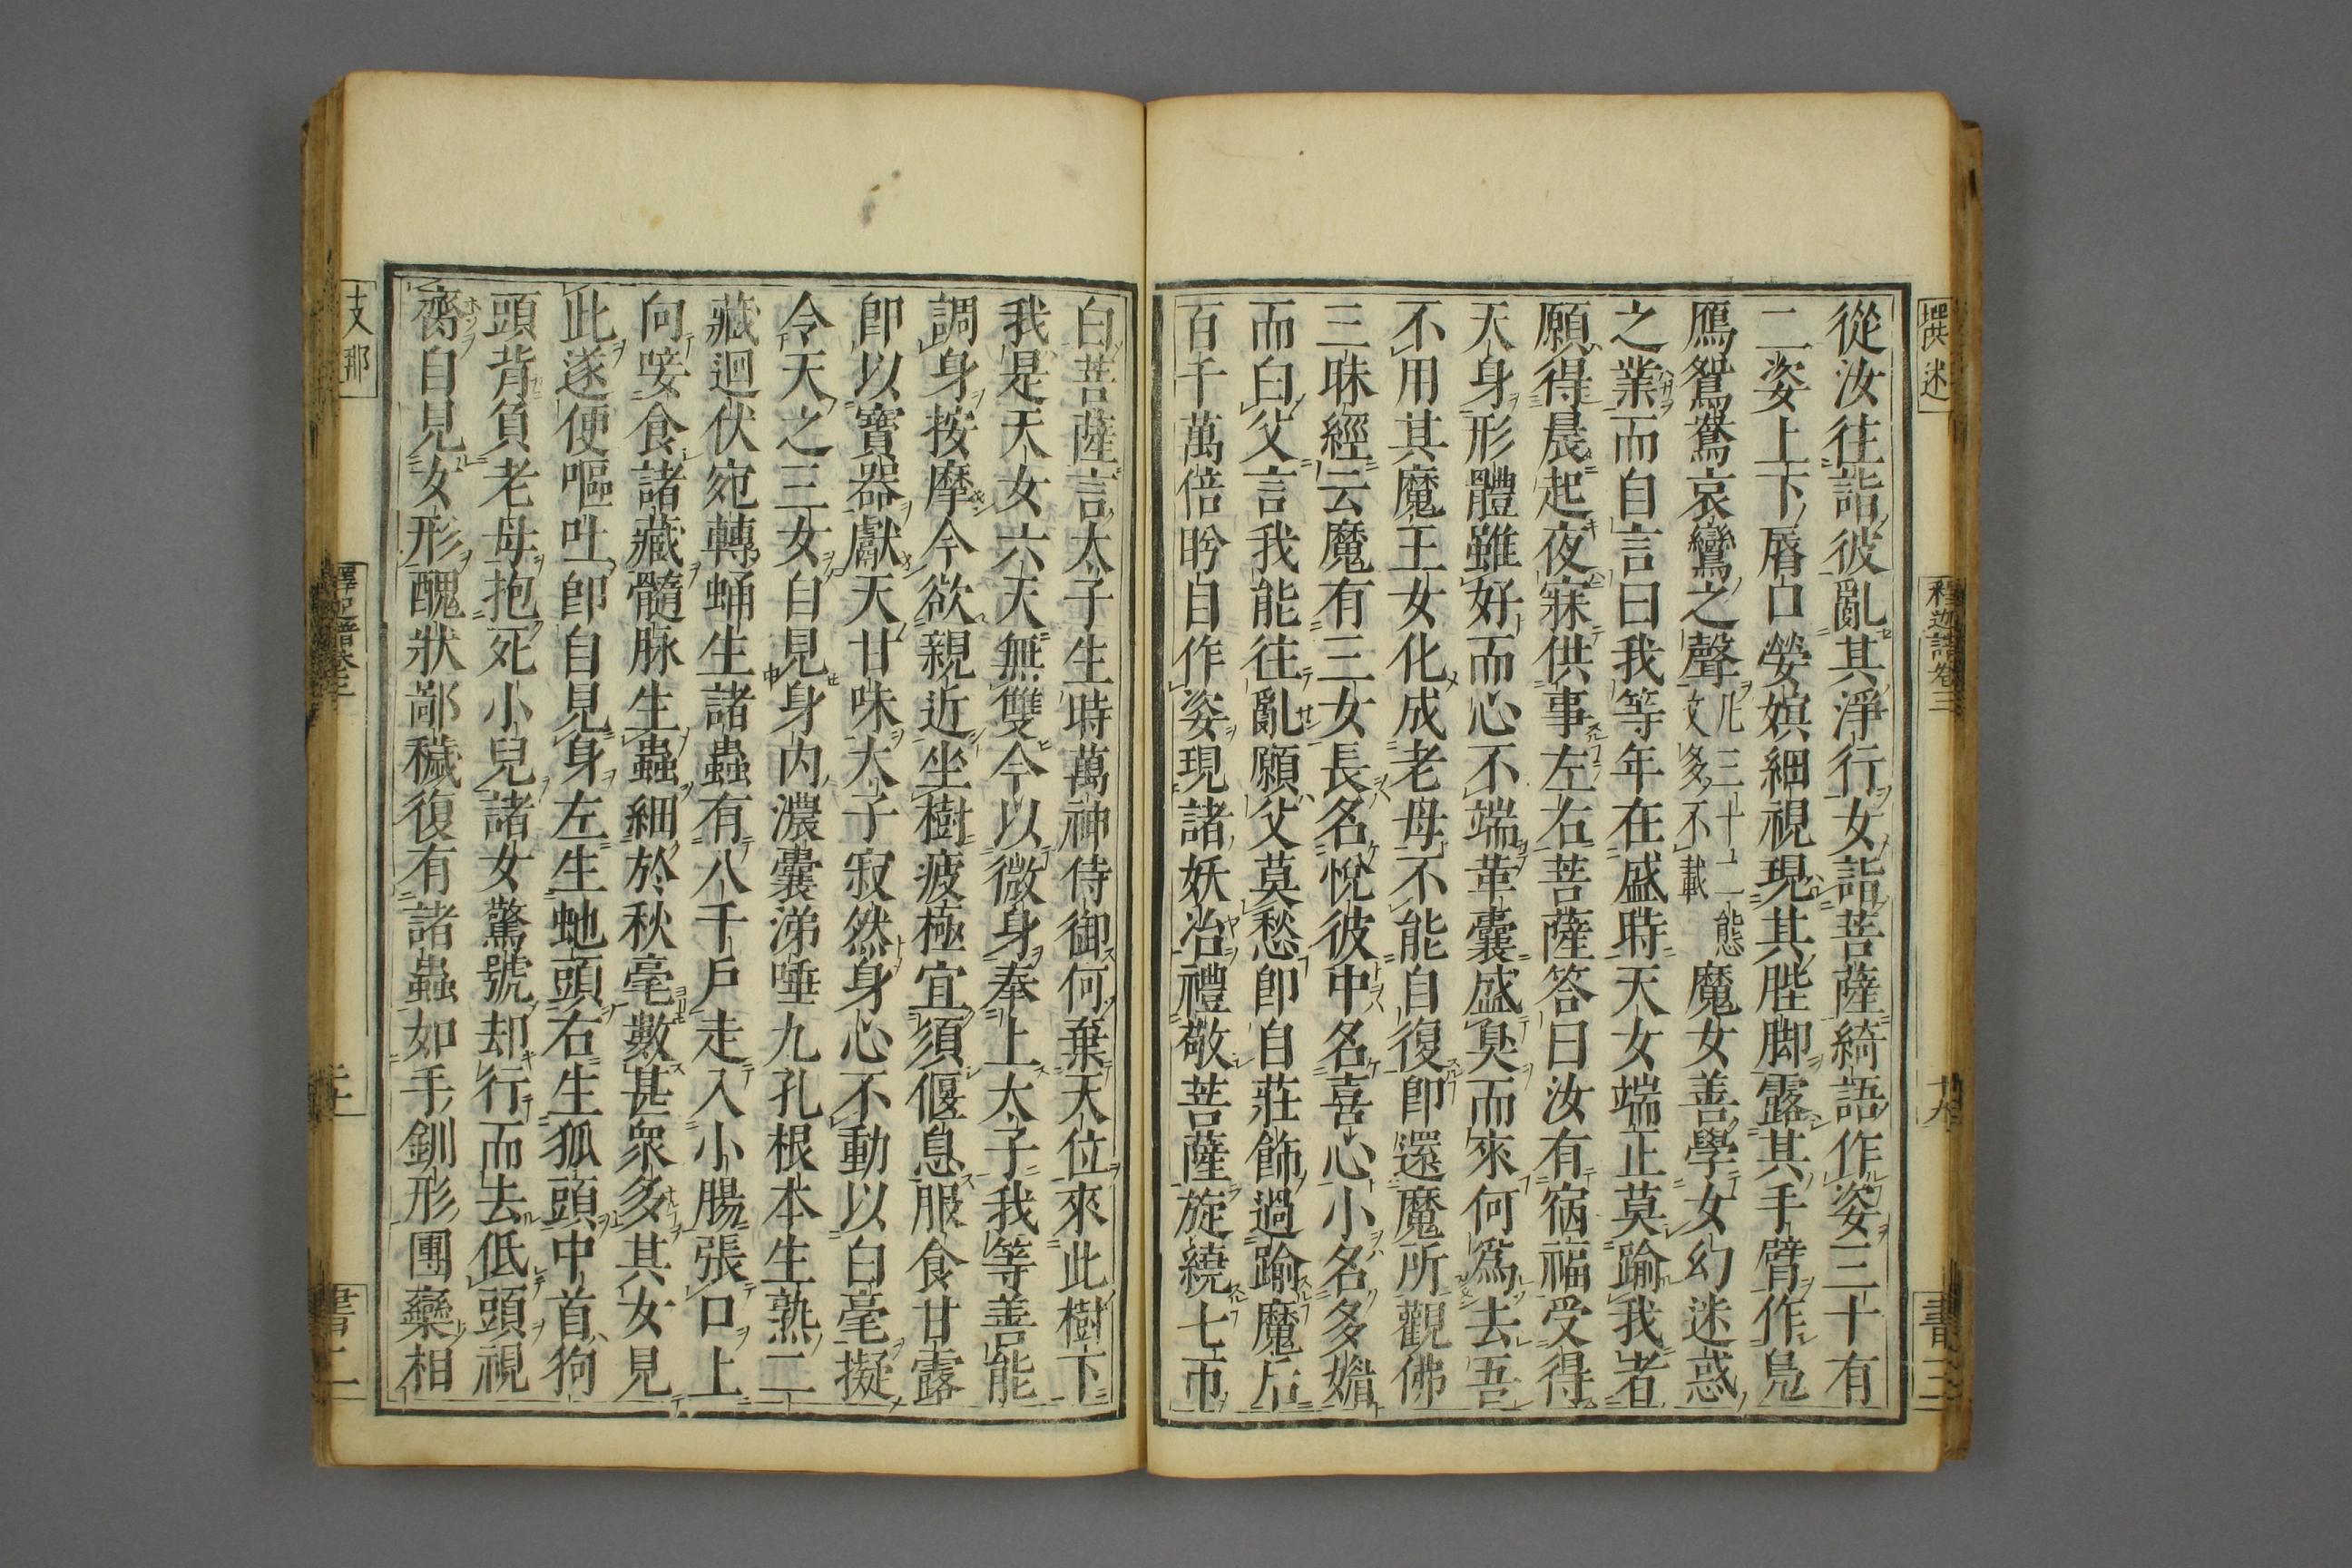 從汝往詣彼亂其淨行女詣菩薩綺語作姿三十有
二姿上下脣口嫈嫇細視現其䏶脚露其手臂作鳧
鴈鴛鴦哀鸞之聲凡三十二態文多不載魔女善學女幻迷惑
之業而自言曰我等年在盛時天女端正莫踰我者
願得晨起夜寐供事左右菩薩答曰汝有宿福受得
天身形體雖好而心不端革囊盛臭而來何爲去吾
不用其魔王女化成老母不能自復即還魔所觀佛
三昧經云魔有三女長名悅彼中名喜心小名多媚
而白父言我能往亂願父莫愁即自莊飾過踰魔后
百千萬倍眄目作姿現諸妖冶禮敬菩薩旋繞七帀
白菩薩言太子生時萬神侍御何棄天位來此樹下
我是天女六天無雙今以微身奉上太子我等善能
調身按摩今欲親近坐樹疲極宜須偃息服食甘露
即以寶器獻天甘味太子寂然身心不動以白毫擬
令天之三女自見身内濃囊涕唾九孔根本生熟二
藏迴伏宛轉蛹生諸蟲有八千戶走入小腸張口上
向唼食諸藏髓脉生蟲細於秋毫數甚衆多其女見
此遂便嘔吐即自見身左生虵頭右生狐頭中首狗
頭背負老母抱死小兒諸女驚號却行而去低頭視
齋自見女形醜狀鄙穢復有諸蟲如手釧形團欒相
撰述
釋迦譜卷三
廿九
書二
支那
釋迦譜卷三
書二